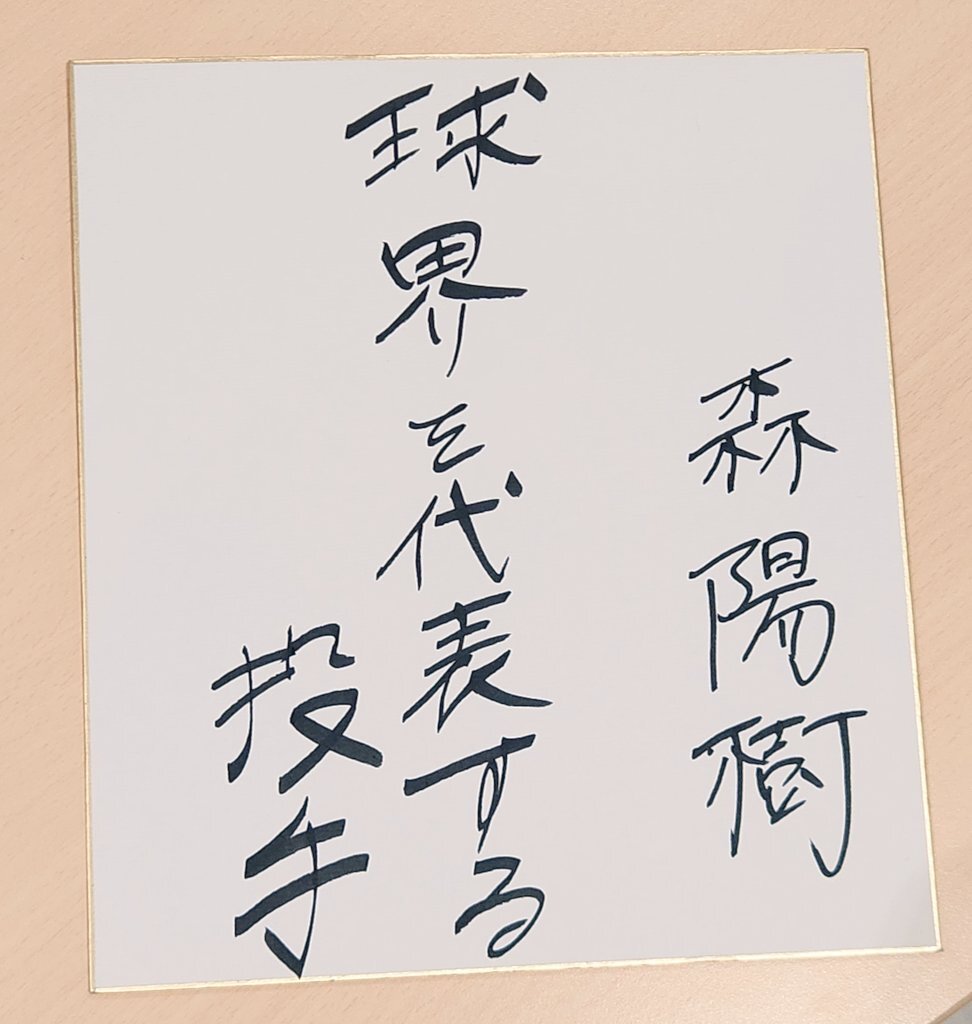 森陽樹
球界を代表する
投手